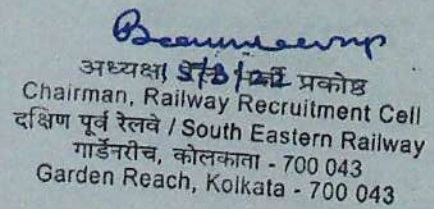 अध्यक्ष 5/8/22 प्रकोष्ठ
Chairman, Railway Recruitment Cell
दक्षिण पूर्व रेलवे / South Eastern Railway
गार्डेनरीच, कोलकाता - 700 043
Garden Reach, Kolkata - 700 043